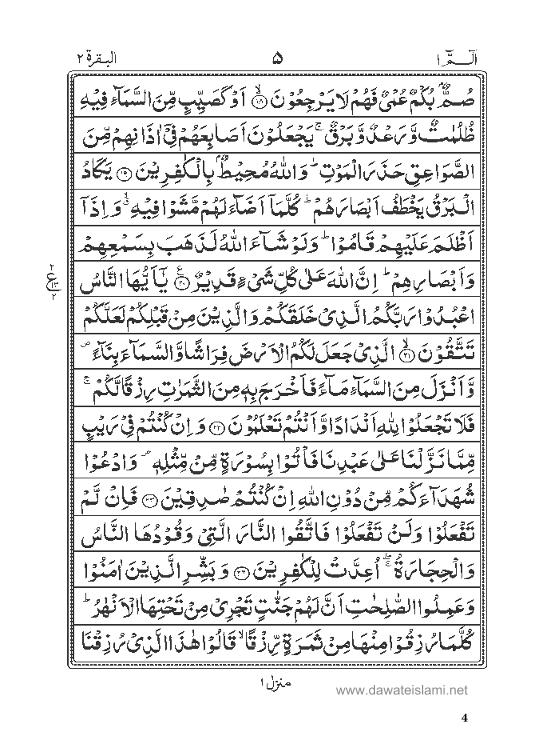 الٓـمّٓ ١ ٥ البقرة ٢
صُمٌّۢ بُكْمٌ عُمْیٌ فَهُمْ لَا یَرْجِعُوْنَۙ۝۱۸ اَوْ كَصَیِّبٍ مِّنَ السَّمَآءِ فِیْهِ
ظُلُمٰتٌ وَّ رَعْدٌ وَّ بَرْقٌۚ یَجْعَلُوْنَ اَصَابِعَهُمْ فِیْۤ اٰذَانِهِمْ مِّنَ
الصَّوَاعِقِ حَذَرَ الْمَوْتِؕ وَ اللّٰهُ مُحِیْطٌۢ بِالْكٰفِرِیْنَ۝۱۹ یَكَادُ
الْبَرْقُ یَخْطَفُ اَبْصَارَهُمْؕ كُلَّمَاۤ اَضَآءَ لَهُمْ مَّشَوْا فِیْهِۙ وَ اِذَاۤ
اَظْلَمَ عَلَیْهِمْ قَامُوْاؕ وَ لَوْ شَآءَ اللّٰهُ لَذَهَبَ بِسَمْعِهِمْ
وَ اَبْصَارِهِمْؕ اِنَّ اللّٰهَ عَلٰى كُلِّ شَیْءٍ قَدِیْرٌ۠۝۲۰ یٰۤاَیُّهَا النَّاسُ
اعْبُدُوْا رَبَّكُمُ الَّذِیْ خَلَقَكُمْ وَ الَّذِیْنَ مِنْ قَبْلِكُمْ لَعَلَّكُمْ
تَتَّقُوْنَۙ۝۲۱ الَّذِیْ جَعَلَ لَكُمُ الْاَرْضَ فِرَاشًا وَّ السَّمَآءَ بِنَآءً۪
وَّ اَنْزَلَ مِنَ السَّمَآءِ مَآءً فَاَخْرَجَ بِهٖ مِنَ الثَّمَرٰتِ رِزْقًا لَّكُمْۚ
فَلَا تَجْعَلُوْا لِلّٰهِ اَنْدَادًا وَّ اَنْتُمْ تَعْلَمُوْنَ۝۲۲ وَ اِنْ كُنْتُمْ فِیْ رَیْبٍ
مِّمَّا نَزَّلْنَا عَلٰى عَبْدِنَا فَاْتُوْا بِسُوْرَةٍ مِّنْ مِّثْلِهٖ۪ وَ ادْعُوْا
شُهَدَآءَكُمْ مِّنْ دُوْنِ اللّٰهِ اِنْ كُنْتُمْ صٰدِقِیْنَ۝۲۳ فَاِنْ لَّمْ
تَفْعَلُوْا وَ لَنْ تَفْعَلُوْا فَاتَّقُوا النَّارَ الَّتِیْ وَ قُوْدُهَا النَّاسُ
وَ الْحِجَارَةُ ۚۖ اُعِدَّتْ لِلْكٰفِرِیْنَ۝۲۴ وَ بَشِّرِ الَّذِیْنَ اٰمَنُوْا
وَ عَمِلُوا الصّٰلِحٰتِ اَنَّ لَهُمْ جَنّٰتٍ تَجْرِیْ مِنْ تَحْتِهَا الْاَنْهٰرُؕ
كُلَّمَا رُزِقُوْا مِنْهَا مِنْ ثَمَرَةٍ رِّزْقًاۙ قَالُوْا هٰذَا الَّذِیْ رُزِقْنَا
منزل ١
www.dawateislami.net
4